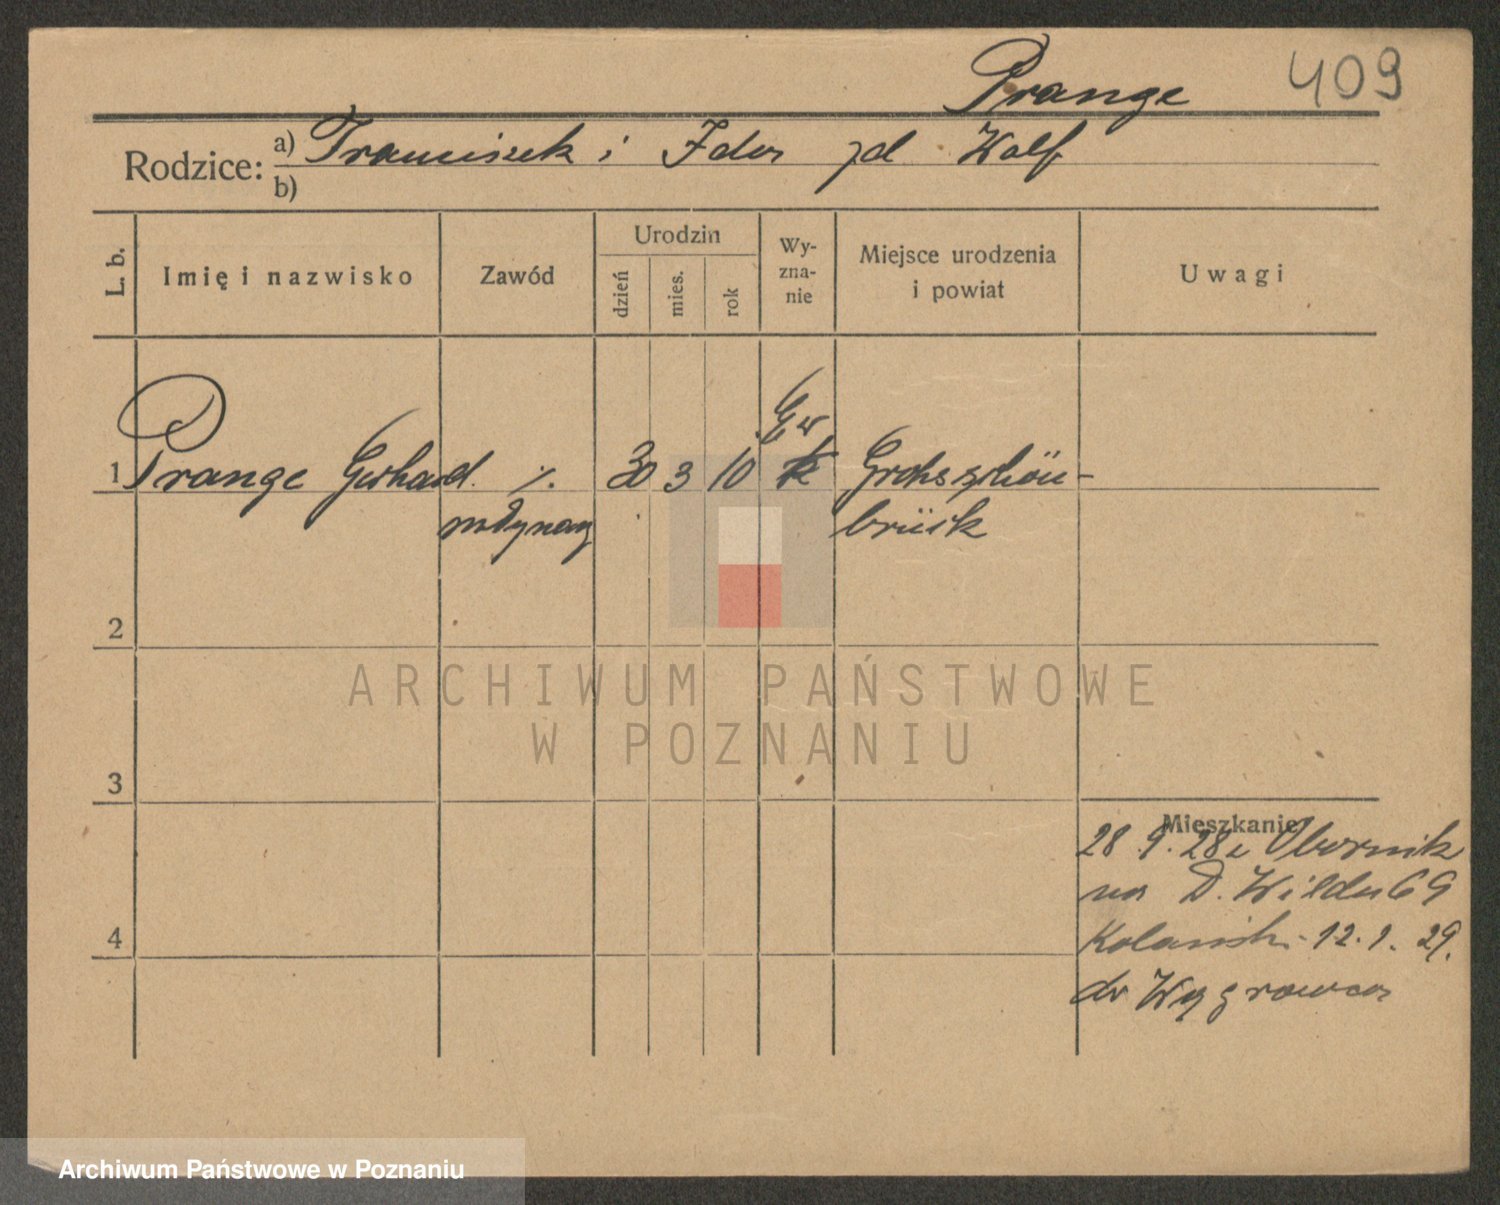 Prange 409
Rodzice: a) Franciszek i Ida zd Wolf
b)
L. b. Imię i nazwisko Zawód Urodzin dzień mies. rok Wyzna-nie Miejsce urodzenia i powiat Uwagi
Ew
1 Prange Gerhard. %. 30 3 10 k Grohsschön-
młynarz brück
2
ARCHIWUM PAŃSTWOWE
W POZNANIU
3
Mieszkanie
28.9.28 z Obornik
na D. Wilda 69
12.1.29.
4
do Wągrowca
Archiwum Państwowe w Poznaniu